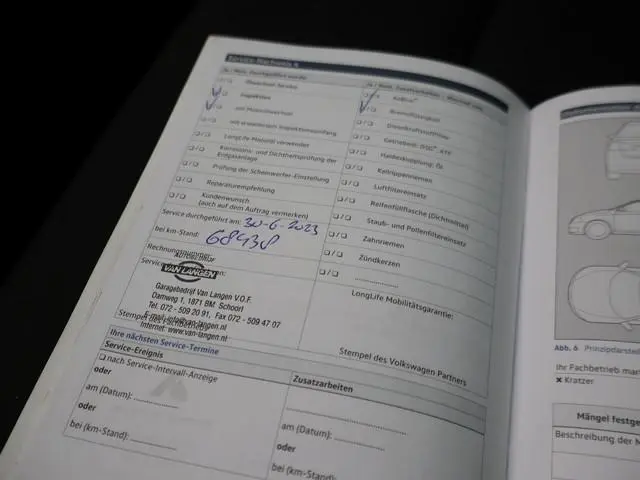 Service-Nachweis 4
Ja / Nein, Durchgeführt wurde:
Ja / Nein, Zusatzarbeiten
Ölwechsel-Service
Inspektion
mit Motorölwechsel
mit erweitertem Inspektionsumfang
LongLife Motoröl verwendet
Korrosions- und Dichtheitsprüfung der Erdgasanlage
Prüfung der Scheinwerfer-Einstellung
Reparaturempfehlung
Kundenwunsch
(auch auf dem Auftrag vermerken)
AdBlue®
Bremsflüssigkeit
Dieselkraftstofffilter
Getriebeöl: DSG®, ATF
Haldexkupplung: Öl
Keilrippenriemen
Luftfiltereinsatz
Reifenfüllflasche (Dichtmittel)
Staub- und Pollenfiltereinsatz
Zahnriemen
Zündkerzen
Service durchgeführt am: 30-6-2023
bei km-Stand: 68938
Rechnungsnummer
AUTOBEDRIJF
VAN LANGEN
Garagebedrijf Van Langen V.O.F.
Damweg 1, 1871 BM. Schoorl
Tel. 072 - 509 20 91, Fax 072 - 509 47 07
E-mail: info@van-langen.nl
Stempel des Fachbetriebs
Internet: www.van-langen.nl
LongLife Mobilitätsgarantie:
Stempel des Volkswagen Partners
Ihre nächsten Service-Termine
Service-Ereignis
Zusatzarbeiten
❑ nach Service-Intervall-Anzeige
oder
am (Datum): ..................
oder
bei (km-Stand): ..................
am (Datum): ..................
oder
bei (km-Stand): ..................
Abb. 6 Prinzipdarste
Ihr Fachbetrieb mar
✕ Kratzer
Mängel festge
Beschreibung der M